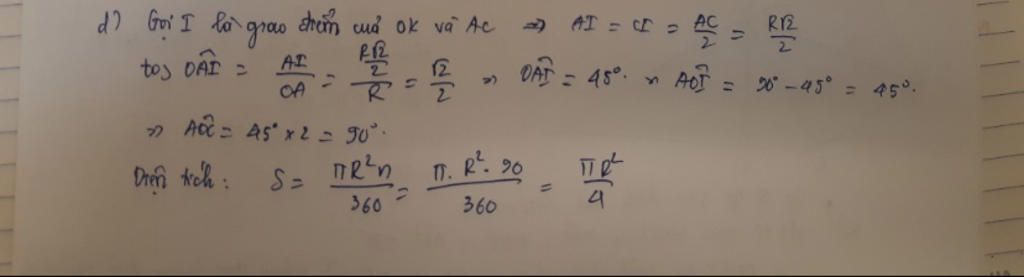 d) Gọi I là giao điểm của OK và AC ⇒ AI = CI = AC/2 = R√2/2
cos OÂI = AI/OA = (R√2/2)/R = √2/2 ⇒ OÂI = 45°. ⇒ AÔI = 90° - 45° = 45°.
⇒ AÔC = 45° × 2 = 90°.
Diện tích: S = πR²n/360 = π.R².90/360 = πR²/4